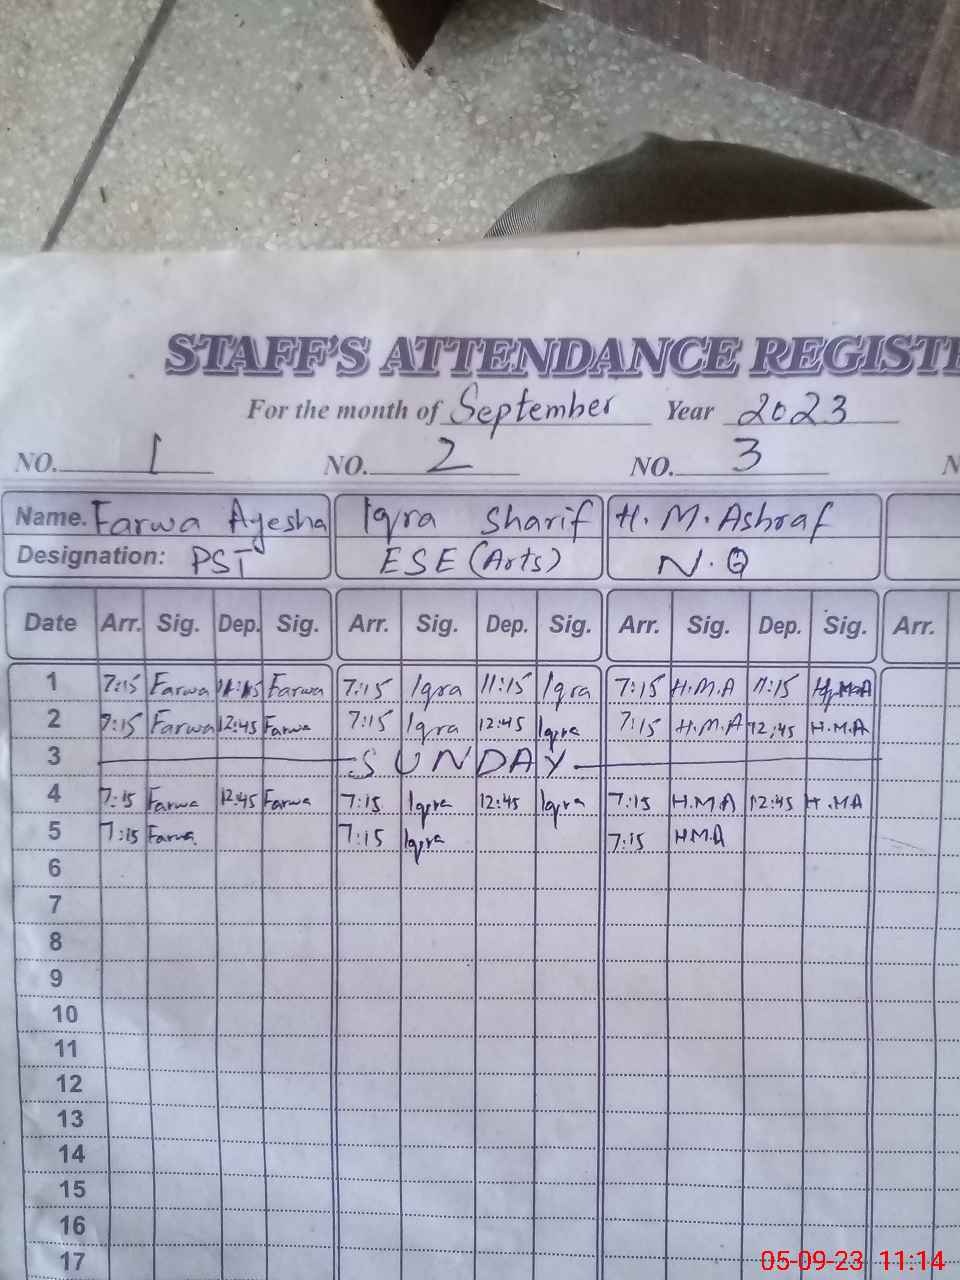 STAFF'S ATTENDANCE REGISTE
For the month of September Year 2023
NO. 1 NO. 2 NO. 3 N
Name. Farwa Ayesha Iqra Sharif H. M. Ashraf
Designation: PST ESE (Arts) N.Q
Date Arr. Sig. Dep. Sig. Arr. Sig. Dep. Sig. Arr. Sig. Dep. Sig. Arr.
1 7:15 Farwa 11:15 Farwa 7:15 Iqra 11:15 Iqra 7:15 H.M.A 11:15 H.M.A
2 7:15 Farwa 12:45 Farwa 7:15 Iqra 12:45 Iqra 7:15 H.M.A 12:45 H.M.A
3 SUNDAY
4 7:15 Farwa 12:45 Farwa 7:15 Iqra 12:45 Iqra 7:15 H.M.A 12:45 H.MA
5 7:15 Farwa 7:15 Iqra 7:15 HM.A
6
7
8
9
10
11
12
13
14
15
16
17
05-09-23 11:14